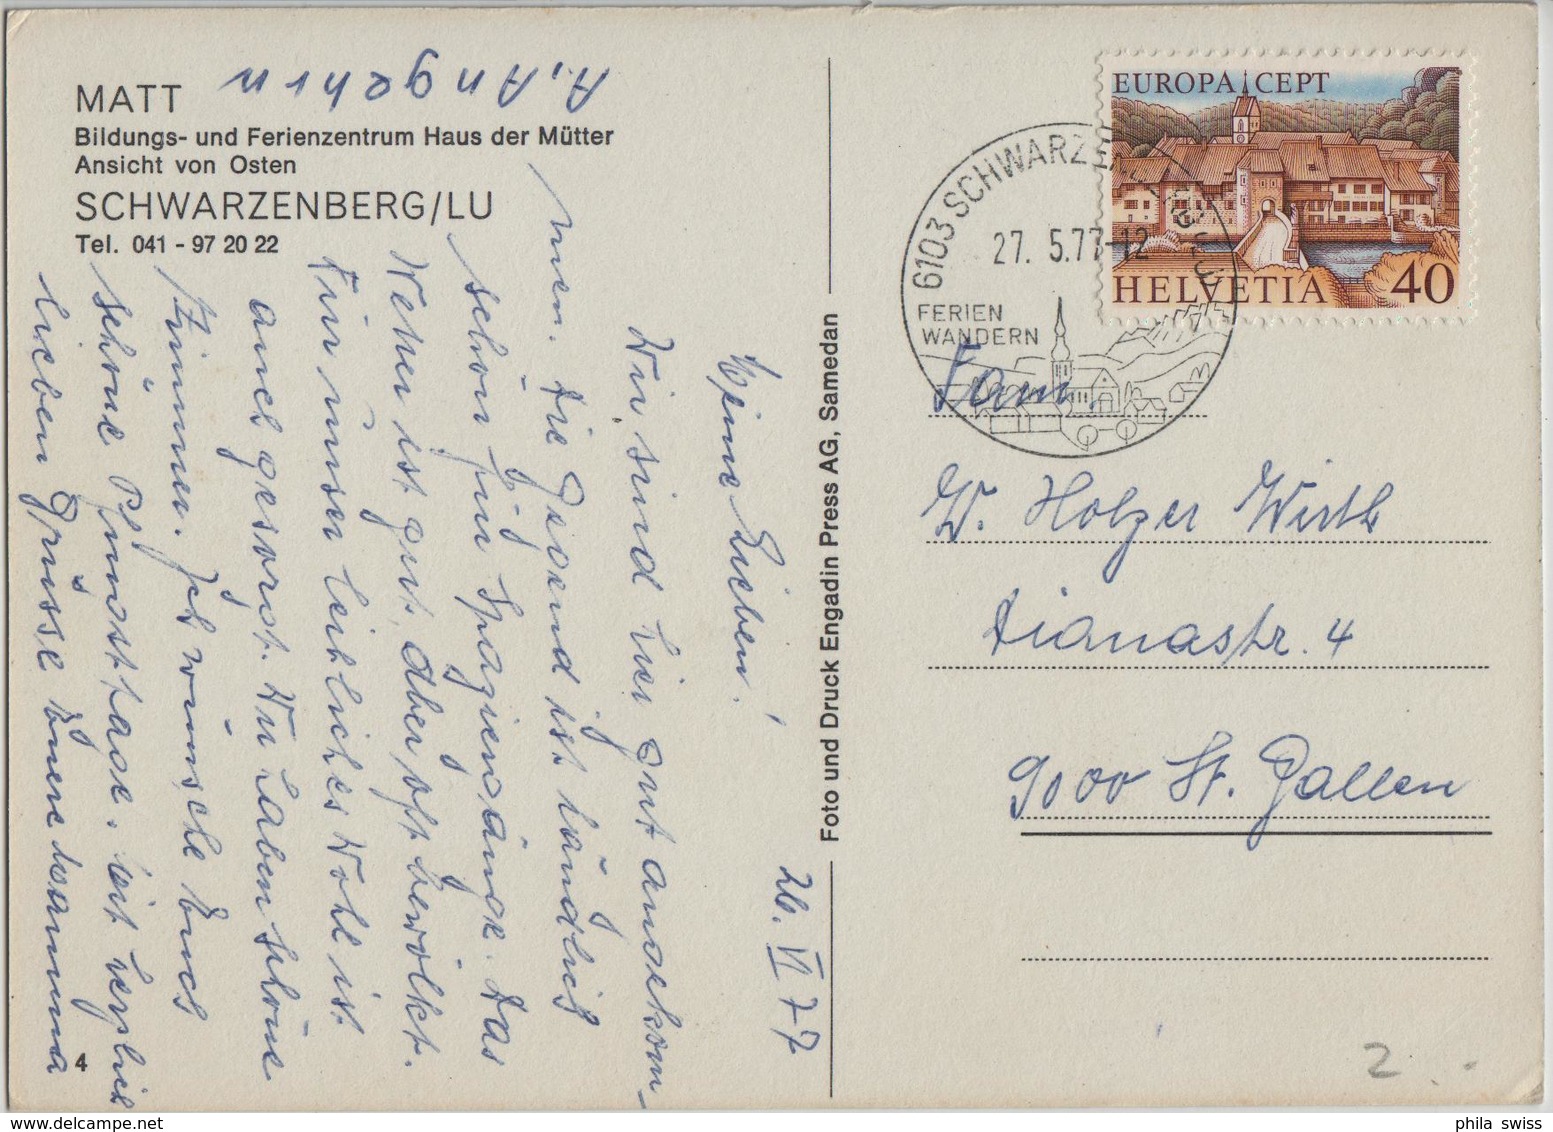 MATT
Bildungs- und Ferienzentrum Haus der Mütter
Ansicht von Osten
SCHWARZENBERG/LU
Tel. 041 - 97 20 22
26. VI 77
Meine Lieben!
Wir sind hier gut angekom-
men. Die Gegend ist ländlich
schön für Spaziergänge. Das
Wetter ist gut, aber oft bewölkt.
Für unser leibliches Wohl ist
auch gesorgt. Wir haben schöne
Zimmer. Ich wünsche Euch
schöne Pfingsttage. Mit herzlich
lieben Grüsse Eure Mamma
A. Angehrn
4
Foto und Druck Engadin Press AG, Samedan
EUROPA CEPT
HELVETIA 40
6103 SCHWARZENBERG LU
27. 5.77-12
FERIEN
WANDERN
Fam.
W. Holzer Wirth
Dianastr. 4
9000 St. Gallen
2.-
phila swiss